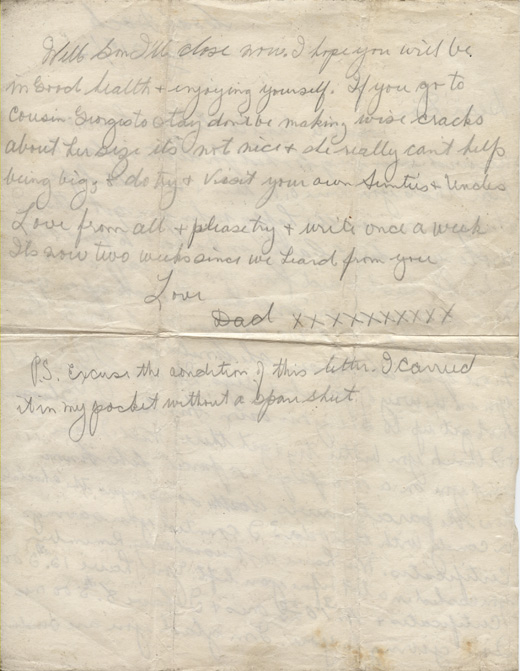 Well Son I'll close now. I hope you will be
in Good health + enjoying yourself. If you go to
Cousin Georgie to stay don't be making wise cracks
about her size its not nice + she really can't help
being big, + do try + Visit your own Aunties + Uncles
Love from all + please try + write once a week
Its now two weeks since we heard from you
Love
Dad xxxxxxxxxx
PS. Excuse the condition of this letter. I carried
it in my pocket without a spare sheet